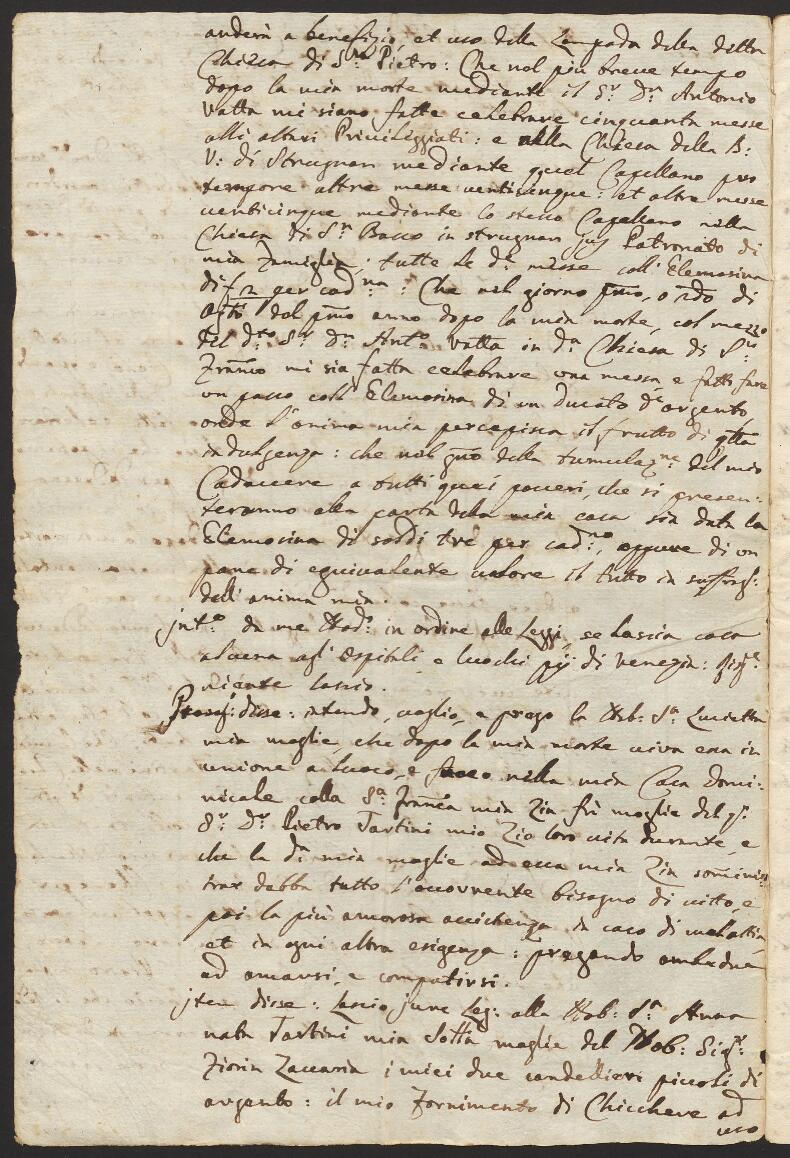 anderà a benefizio, et uso della Lampada della detta
Chiesa di S.n Pietro: Che nel più breve tempo
dopo la mia morte mediante il S.r D.n Antonio
Vatta mi siano fatte celebrare cinquanta messe
alli altari Privileggiati: e nella Chiesa della B:
V: di Strugnan mediante quel Capellano pro
tempore altre messe venticinque: et altre messe
venticinque mediante lo stesso Capellano nella
Chiesa di S.n Basso in strugnan jus Patronato di
mia Famiglia; tutte le d.e messe coll'Elemosina
di £2 per cad.na: Che nel giorno pmo, o 2do di
Agto del pmo anno dopo la mia morte, col mezzo
del d.to S.r D.n Ant.o Vatta in d.a Chiesa di S.n
Franco mi sia fatta celebrare una messa, e fatto fare
un passo coll'Elemosina di un Ducato d'argento,
onde l'anima mia percepisca il frutto di qta
indulgenza: che nel gno della tumulaz.ne del mio
Cadavere a tutti quei poveri, che si presen-
teranno alla porta della mia casa sia data la
Elemosina di soldi tre per cad.no, oppure di un
pane di equivalente valore il tutto in suffrag:
dell'anima mia.
jnt.o da me Nod.o in ordine alle Leggi, se lascia cosa
alcuna agl'Ospitali, e luochi pij di Venezia: Risp.e
niente lascio.
Proseg: disse: intendo, voglio, e prego la Nob: S.a Lucietta
mia moglie, che dopo la mia morte viva essa in
unione a luoco, e fuoco nella mia Casa domi-
nicale colla S.a Franca mia Zia fù moglie del q.m
S.r D.r Pietro Tartini mio Zio loro vita durante, e
che la d.a mia moglie ad essa mia Zia sommini-
strar debba tutto l'occorrente bisogno di vitto, e
poi la più amorosa assistenza in caso di malattia,
et in ogni altra esigenza: pregando ambedue
ad amarsi, e compatirsi.
jtem disse: lascio jure Leg: alla Nob: S.a Anna
nata Tartini mia Sorella moglie del Nob: Sig.r
Fiorin Zaccaria i miei due candellieri piccoli di
argento: il mio Fornimento di Chicchere ad
uso